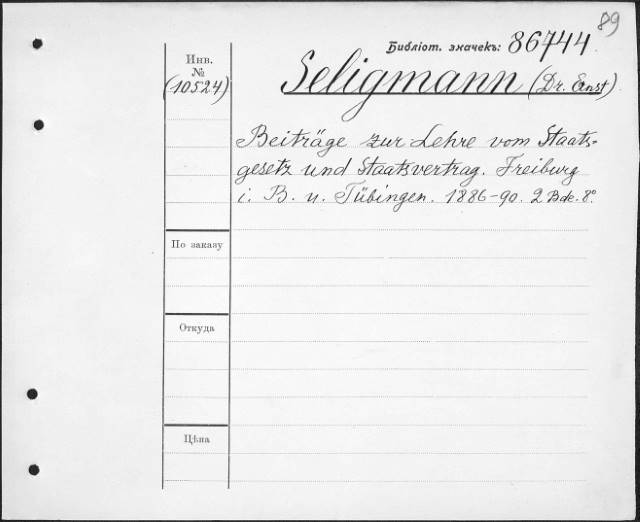 89
Библіот. значекъ: 86744
Инв.
№
(10524)
Seligmann (Dr. Ernst)
Beiträge zur Lehre vom Staats-
gesetz und Staatsvertrag. Freiburg
i. B. u. Tübingen. 1886-90. 2 Bde. 8°
По заказу
Откуда
Цѣна